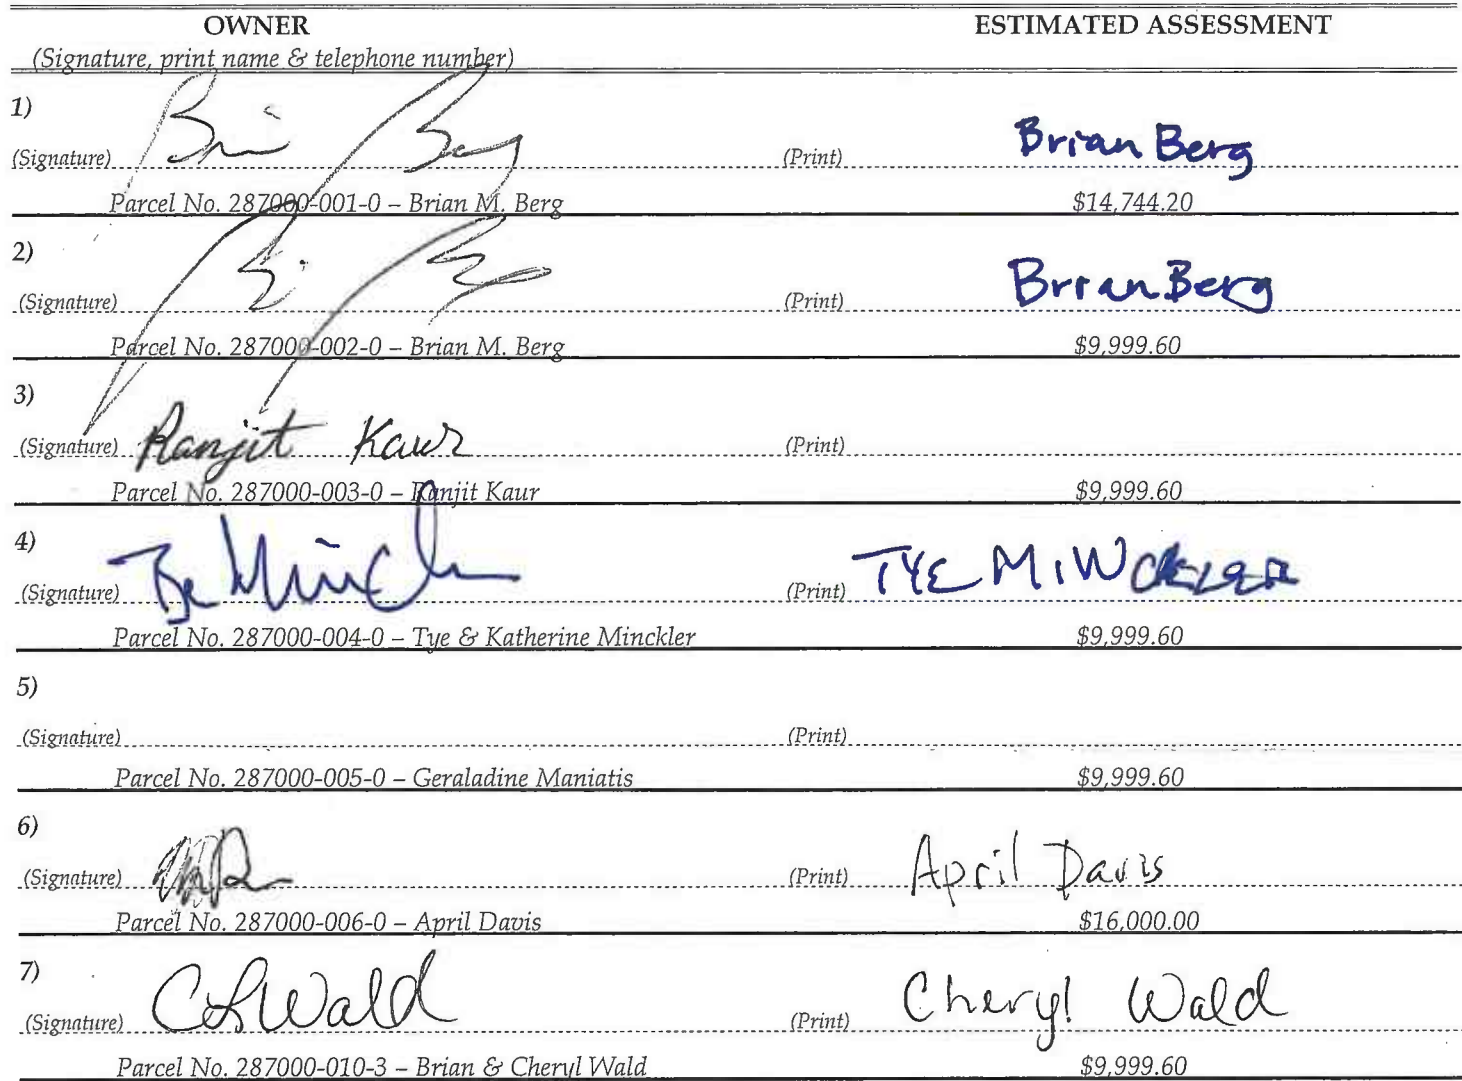 OWNER ESTIMATED ASSESSMENT
(Signature, print name & telephone number)
1)
(Signature) Brian Berg (Print) Brian Berg
Parcel No. 287000-001-0 – Brian M. Berg $14,744.20
2)
(Signature) (Print) Brian Berg
Parcel No. 287000-002-0 – Brian M. Berg $9,999.60
3)
(Signature) Ranjit Kaur (Print)
Parcel No. 287000-003-0 – Ranjit Kaur $9,999.60
4)
(Signature) Tye Minckler (Print) TYE MINCKLER
Parcel No. 287000-004-0 – Tye & Katherine Minckler $9,999.60
5)
(Signature) (Print)
Parcel No. 287000-005-0 – Geraladine Maniatis $9,999.60
6)
(Signature) (Print) April Davis
Parcel No. 287000-006-0 – April Davis $16,000.00
7)
(Signature) CLWald (Print) Cheryl Wald
Parcel No. 287000-010-3 – Brian & Cheryl Wald $9,999.60